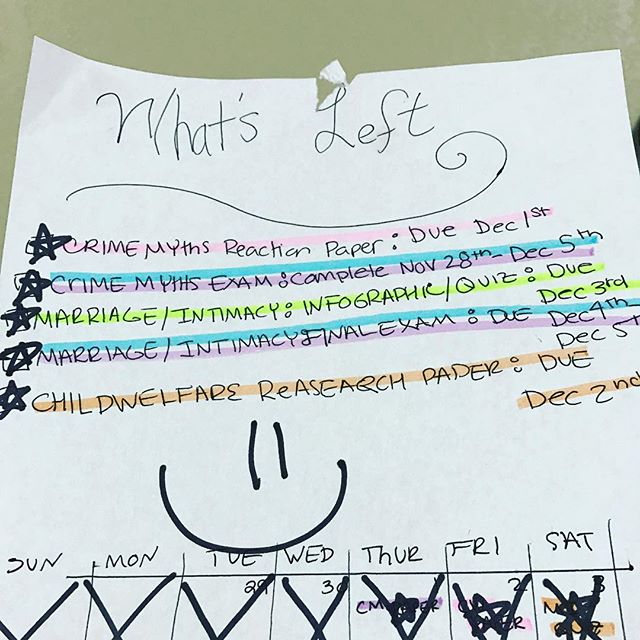 What's Left
CRIME MYThS Reaction Paper: Due Dec 1st
CRIME MYTHS EXAM: Complete Nov 28th - Dec 5th
MARRIAGE/INTIMACY: INFOGRAPHIC/QUIZ: DUE
Dec 3rd
MARRIAGE/INTIMACY FINAL EXAM: DUE Dec 4th
Dec 5th
CHILDWELFARE REASEARCH PAPER: DUE
Dec 2nd
SUN MON TUE WED THUR FRI SAT
29 30 2 3